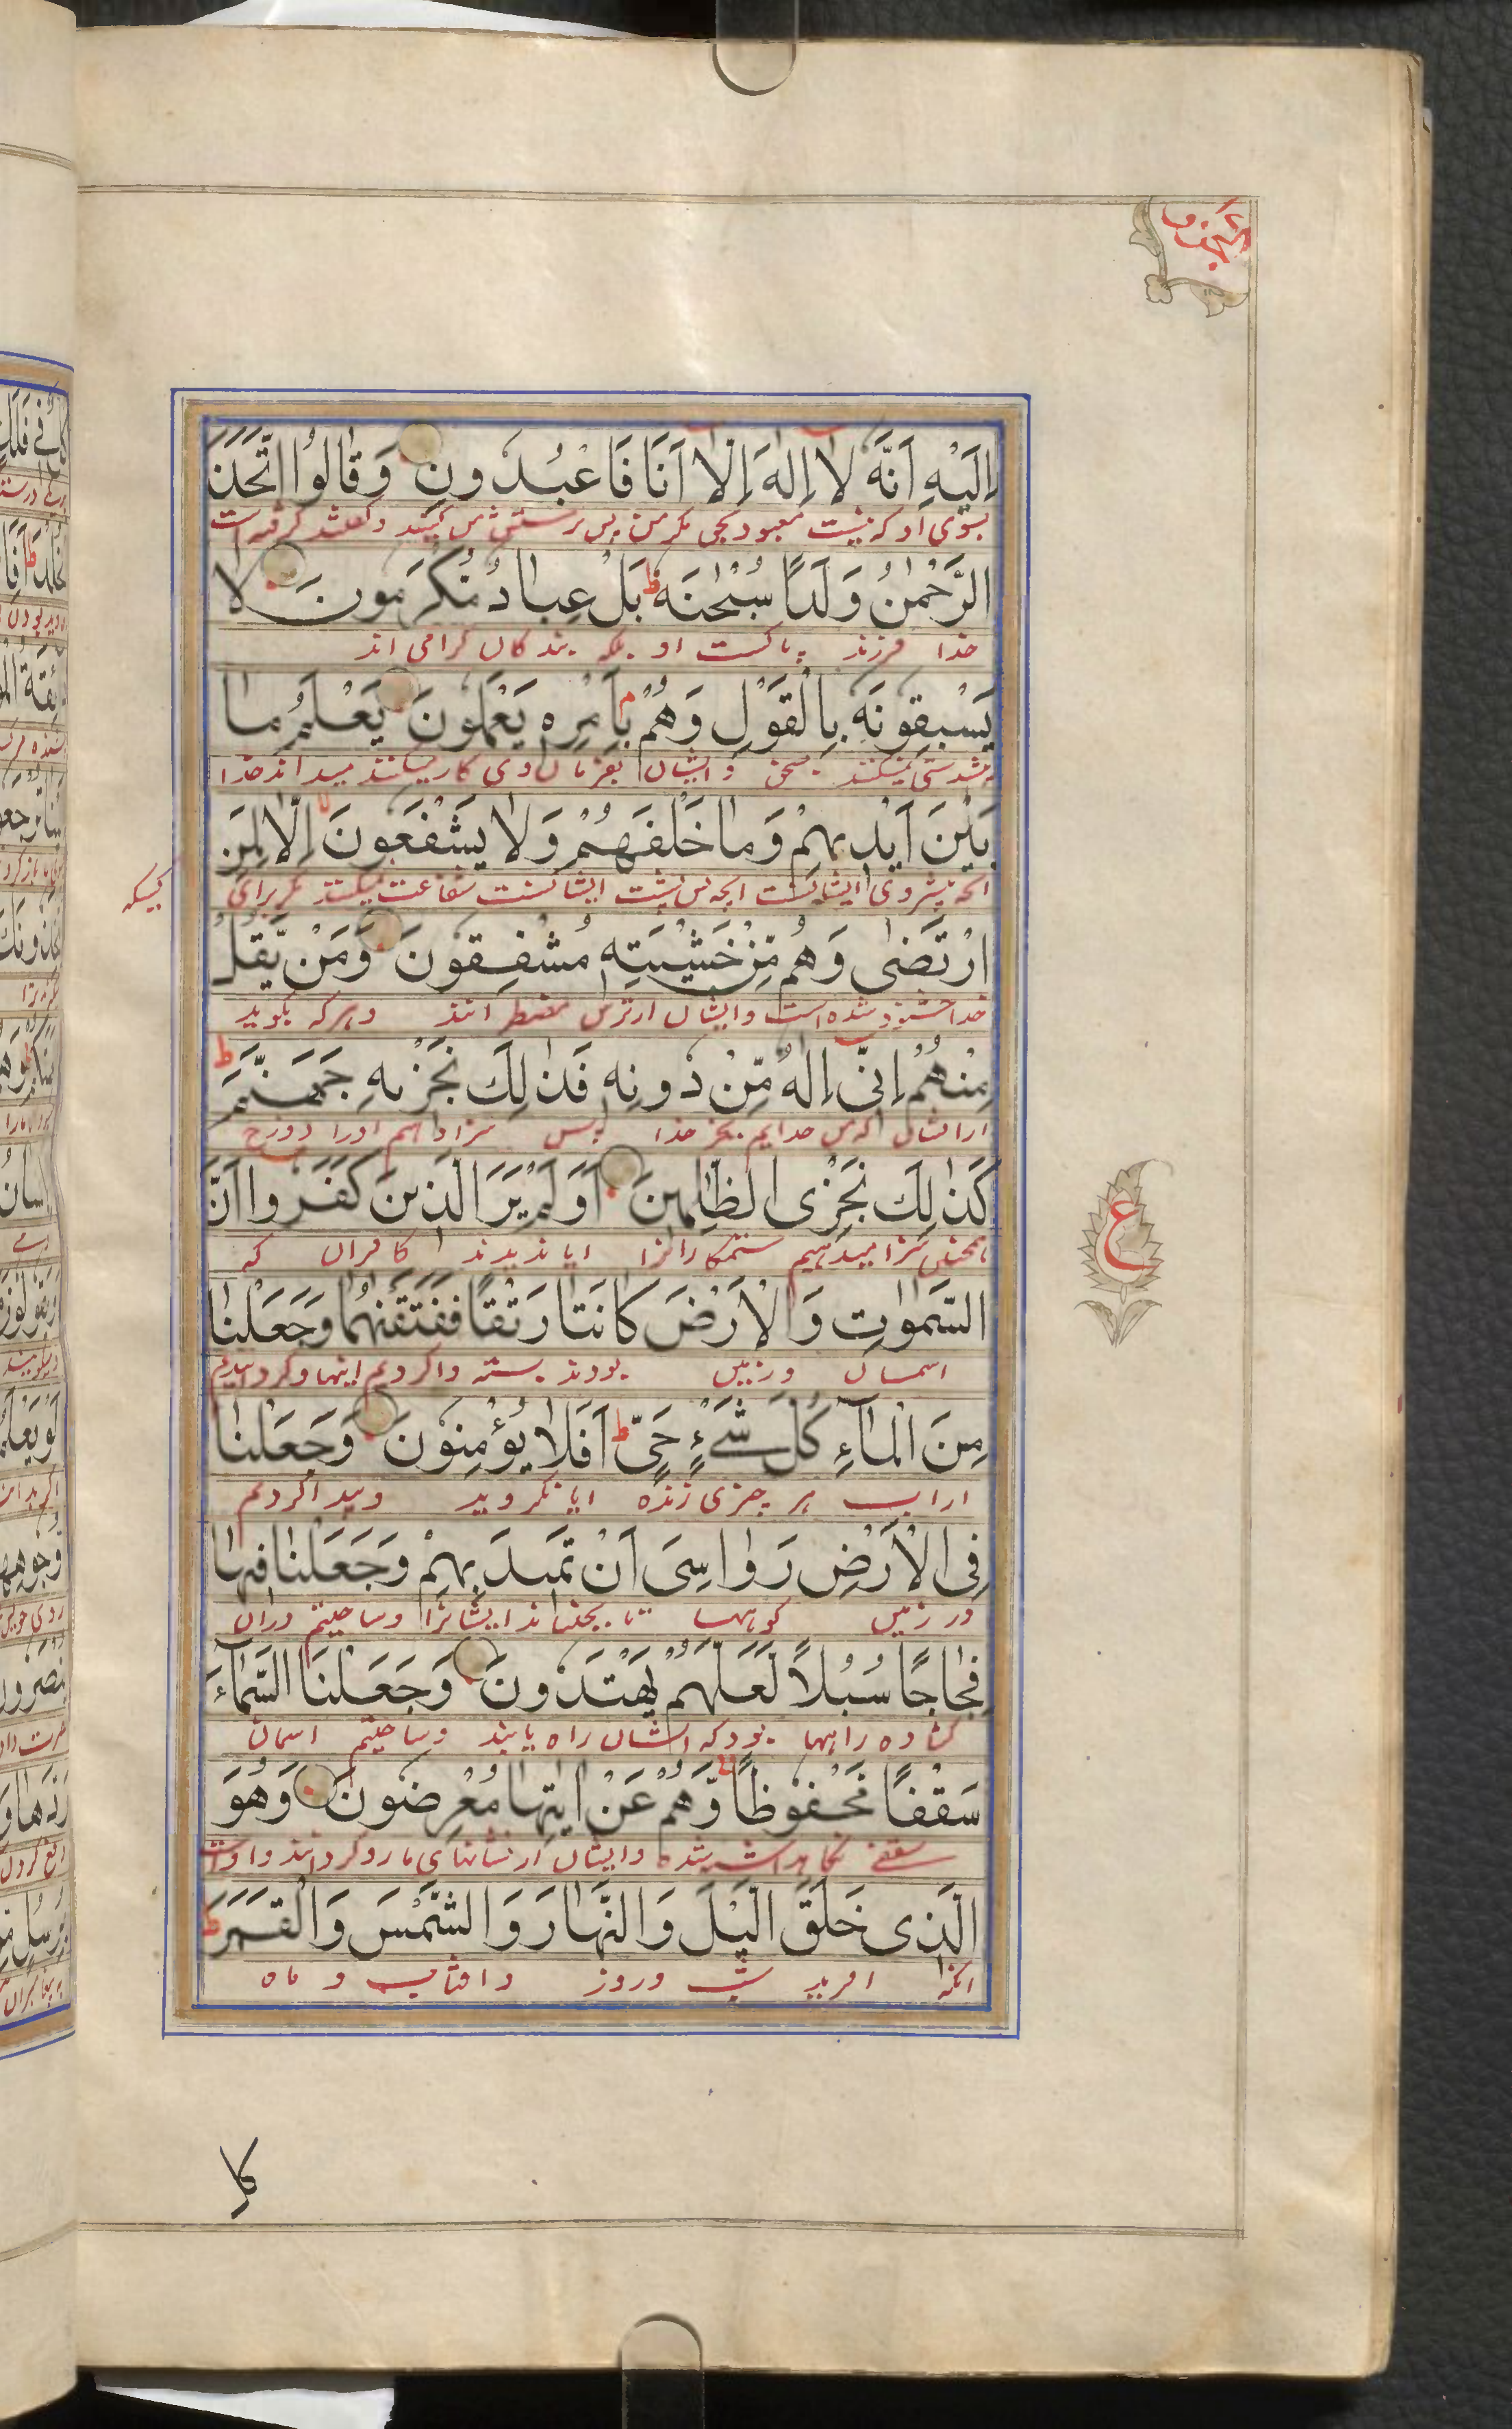 اِلَيْهِ اَنَّهٗ لَا اِلٰهَ اِلَّا اَنَا فَاعْبُدُونِ وَقَالُوا اتَّخَذَ
بسوی او که نیست معبود بحق مگر من پس پرستش من کنید و گفتند گرفته است
الرَّحْمٰنُ وَلَدًا سُبْحٰنَهٗ ط بَلْ عِبَادٌ مُكْرَمُونَ لَا
خدا فرزند پاکست او بلکه بندگان گرامی اند
يَسْبِقُونَهٗ بِالْقَوْلِ وَهُمْ بِاَمْرِهٖ يَعْمَلُونَ يَعْلَمُ مَا
پیشدستی نمیکنند بسخن و ایشان بفرمان وی کار میکنند میداند خدا
بَيْنَ اَيْدِيهِمْ وَمَا خَلْفَهُمْ وَلَا يَشْفَعُونَ اِلَّا لِمَنِ
انچه پیش روی ایشانست انچه پس پشت ایشانست شفاعت نمیکنند مگر برای
کسیکه
ارْتَضٰى وَهُمْ مِّنْ خَشْيَتِهٖ مُشْفِقُونَ وَمَنْ يَّقُلْ
خدا خشنود شده است و ایشان از ترس مضطر انند و هر که بگوید
مِنْهُمْ اِنِّى اِلٰهٌ مِّنْ دُونِهٖ فَذٰلِكَ نَجْزِيهِ جَهَنَّمَ ط
از ایشان که من خدایم بجز خدا پس سزا دهیم اورا دوزخ
كَذٰلِكَ نَجْزِى الظّٰلِمِينَ اَوَلَمْ يَرَ الَّذِينَ كَفَرُوا اَنَّ
همچنین سزا میدهیم ستمکارانرا ایا ندیدند کافران که
السَّمٰوٰتِ وَالْاَرْضَ كَانَتَا رَتْقًا فَفَتَقْنٰهُمَا وَجَعَلْنَا
اسمان و زمین بودند بسته وا کردیم اینها و کردانیدیم
مِنَ الْمَآءِ كُلَّ شَىْءٍ حَىٍّ ط اَفَلَا يُؤْمِنُونَ وَجَعَلْنَا
از اب هر چیزی زنده ایا نگروید و پیدا کردیم
فِى الْاَرْضِ رَوَاسِىَ اَنْ تَمِيدَ بِهِمْ وَجَعَلْنَا فِيهَا
در زمین کوهها تا بجنباند ایشانرا و ساختیم دران
فِجَاجًا سُبُلًا لَعَلَّهُمْ يَهْتَدُونَ وَجَعَلْنَا السَّمَآءَ
کشاده راهها بود که ایشان راه یابند و ساختیم اسمان
سَقْفًا مَحْفُوظًا وَّهُمْ عَنْ اٰيٰتِهَا مُعْرِضُونَ وَهُوَ
سقفی نگاهداشته شده و ایشان از نشانهای ما رو گردانند و اوست
الَّذِى خَلَقَ الَّيْلَ وَالنَّهَارَ وَالشَّمْسَ وَالْقَمَرَ ط
انکه افرید شب و روز و افتاب و ماه
ع